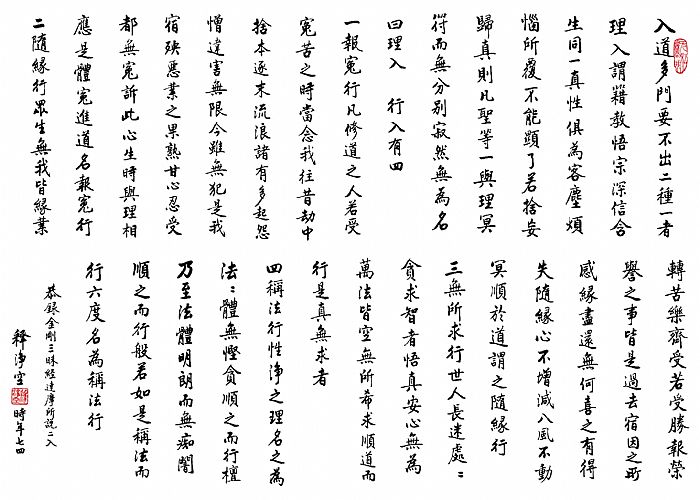 入道多門要不出二種一者
理入謂藉教悟宗深信含
生同一真性俱為客塵煩
惱所覆不能顯了若捨妄
歸真則凡聖等一與理冥
符而無分別寂然無為名
曰理入 行入有四
一報冤行凡修道之人若受
冤苦之時當念我往昔劫中
捨本逐末流浪諸有多起怨
憎違害無限今雖無犯是我
宿殃惡業之果熟甘心忍受
都無冤訴此心生時與理相
應是體冤進道名報冤行
二隨緣行眾生無我皆緣業
轉苦樂齊受若受勝報榮
譽之事皆是過去宿因之所
感緣盡還無何喜之有得
失隨緣心不增減八風不動
冥順於道謂之隨緣行
三無所求行世人長迷處〻
貪求智者悟真安心無為
萬法皆空無所希求順道而
行是真無求者
四稱法行性淨之理名之為
法〻體無慳貪順之而行檀
乃至法體明朗而無痴闇
順之而行般若如是稱法而
行六度名為稱法行
恭錄金剛三昧經達摩所說二入
釋淨空 時年七四